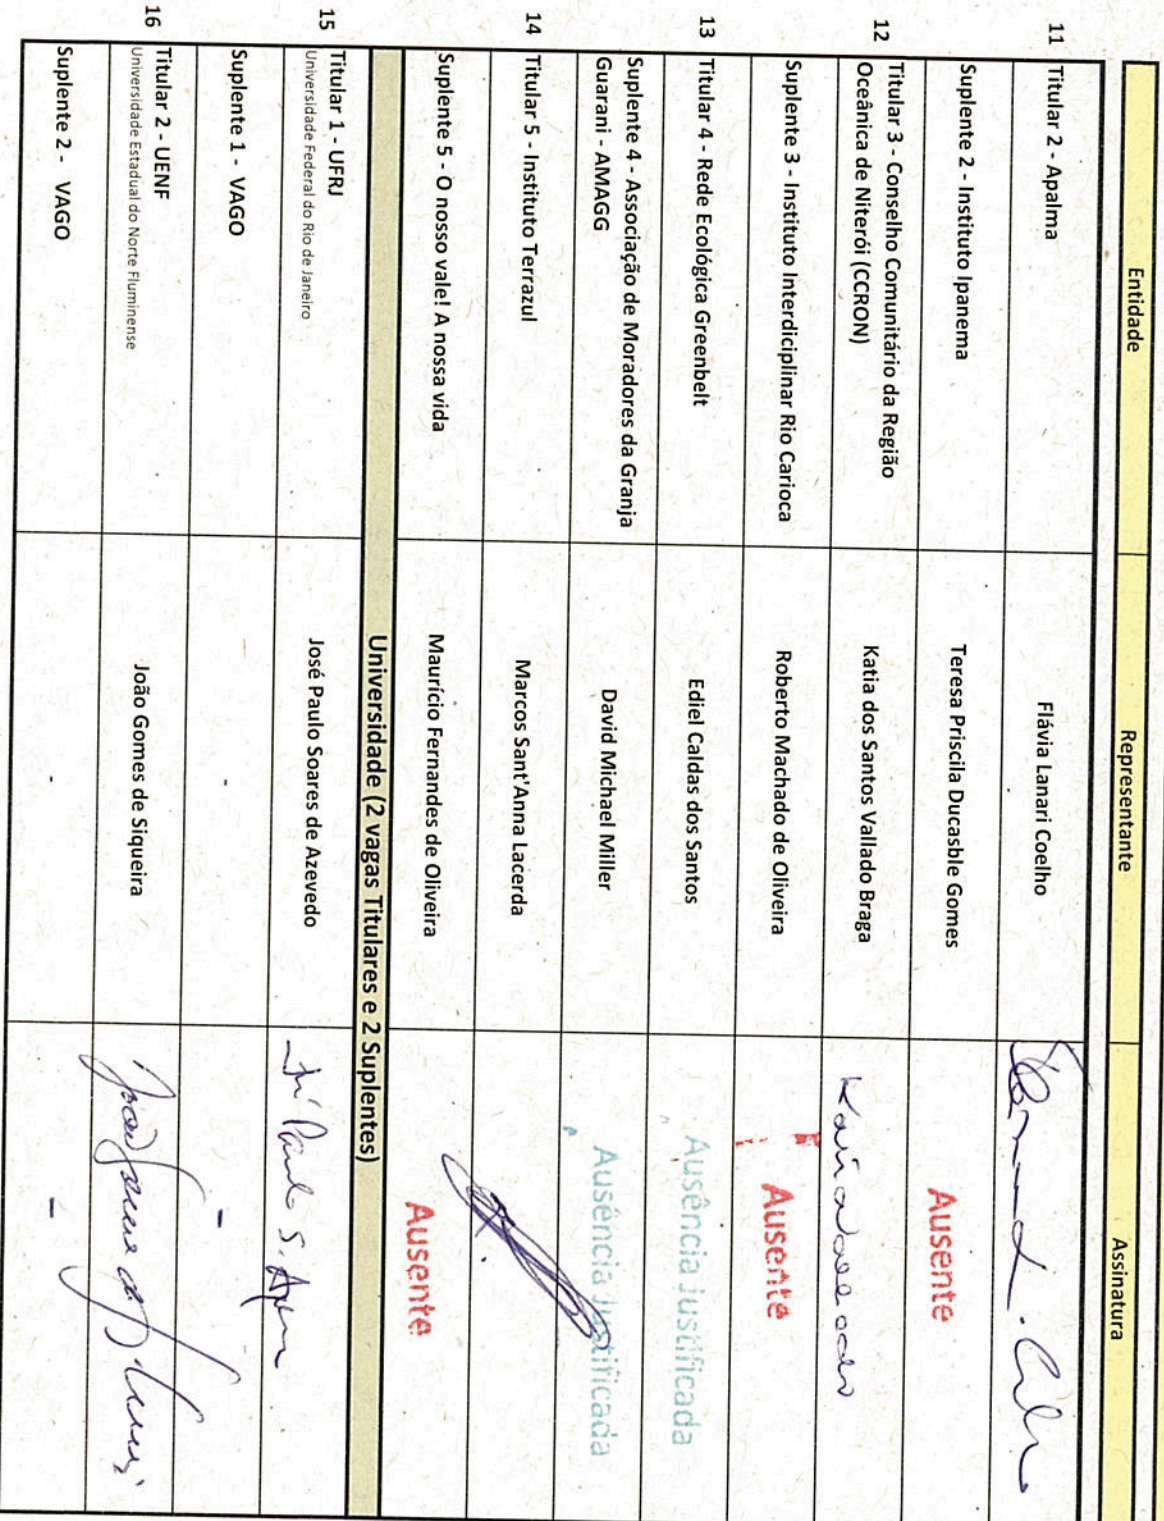 Entidade Representante Assinatura
11 Titular 2 - Apalma Flávia Lanari Coelho
Suplente 2 - Instituto Ipanema Teresa Priscila Ducasble Gomes Ausente
12 Titular 3 - Conselho Comunitário da Região
Oceânica de Niterói (CCRON) Katia dos Santos Vallado Braga
Suplente 3 - Instituto Interdiciplinar Rio Carioca Roberto Machado de Oliveira Ausente
13 Titular 4 - Rede Ecológica Greenbelt Ediel Caldas dos Santos Ausência Justificada
Suplente 4 - Associação de Moradores da Granja
Guarani - AMAGG David Michael Miller Ausência Justificada
14 Titular 5 - Instituto Terrazul Marcos Sant'Anna Lacerda
Suplente 5 - O nosso vale! A nossa vida Maurício Fernandes de Oliveira Ausente
Universidade (2 vagas Titulares e 2 Suplentes)
15 Titular 1 - UFRJ
Universidade Federal do Rio de Janeiro José Paulo Soares de Azevedo
Suplente 1 - VAGO - -
16 Titular 2 - UENF
Universidade Estadual do Norte Fluminense João Gomes de Siqueira
Suplente 2 - VAGO - -